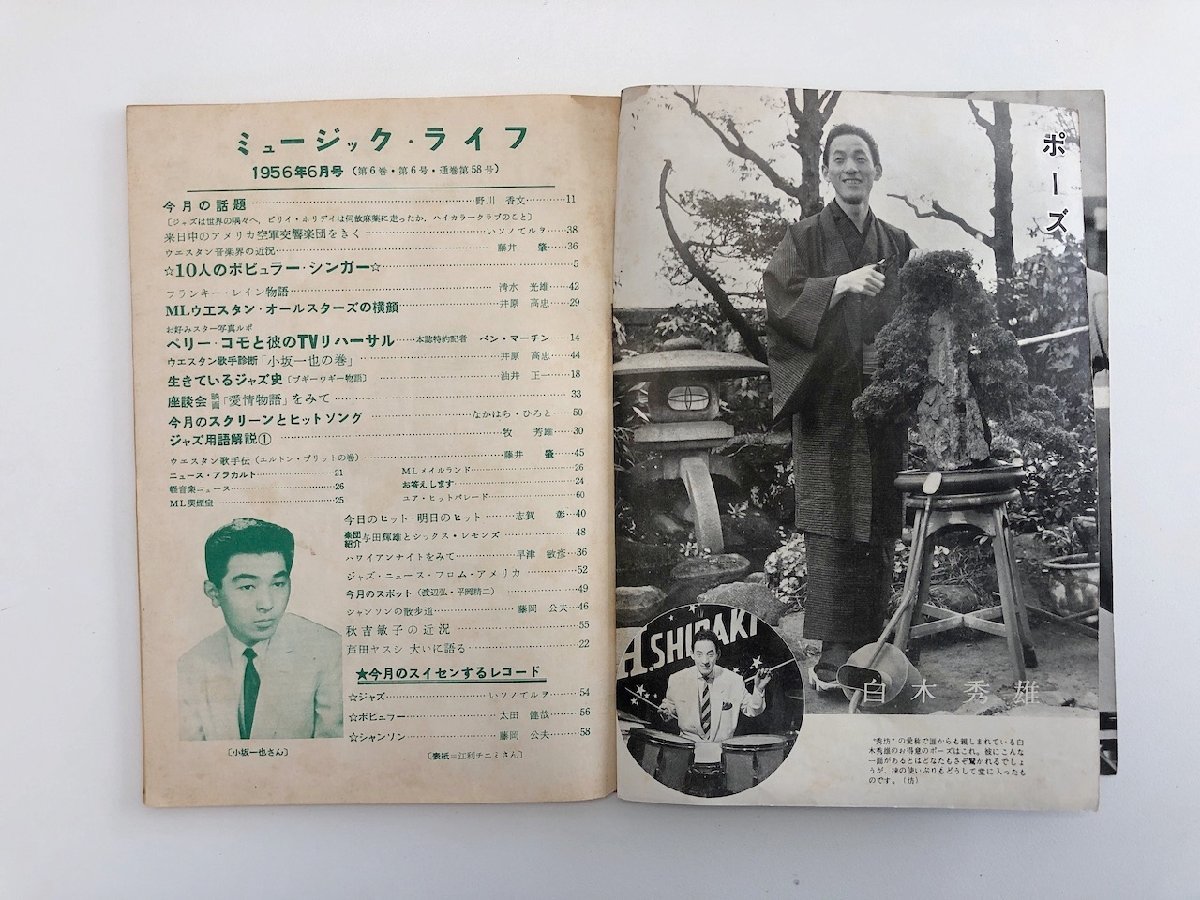 ミュージック・ライフ
1956年6月号（第6巻・第6号・通巻第58号）
今月の話題 野川 香文 11
〔ジャズは世界の隅々へ，ビリイ・ホリデイは何故麻薬に走ったか，ハイカラークラブのこと〕
来日中のアメリカ空軍交響楽団をきく いソノてルヲ 38
ウエスタン音楽界の近況 藤井 肇 36
☆10人のポピュラー・シンガー☆ 5
フランキー・レイン物語 清水 光雄 42
MLウエスタン・オールスターズの横顔 井原 高忠 29
お好みスター写真ルポ
ペリー・コモと彼のTVリハーサル 本誌特約記者 ベン・マーチン 14
ウエスタン歌手診断「小坂一也の巻」 井原 高忠 44
生きているジャズ史〔ブギーウギー物語〕 油井 正一 18
座談会 映画「愛情物語」をみて 33
今月のスクリーンとヒットソング なかはら・ひろと 50
ジャズ用語解説① 牧 芳雄 30
ウエスタン歌手伝（エルトン・ブリットの巻） 藤井 肇 45
ニュース・アラカルト 21
軽音楽ニュース 26
ML喫煙室 25
MLメイルランド 26
お答えします 24
ユア・ヒットパレード 60
今日のヒット 明日のヒット 志賀 彰 40
楽団紹介 与田輝雄とシックス・レモンズ 48
ハワイアンナイトをみて 早津 敏彦 36
ジャズ・ニュース・フロム・アメリカ 52
今月のスポット（渡辺弘・平岡精二） 49
シャンソンの散歩道 藤岡 公夫 46
秋吉敏子の近況 55
芦田ヤスシ 大いに語る 22
★今月のスイセンするレコード
☆ジャズ いソノてルヲ 54
☆ポピュラー 太田 56
☆シャンソン 藤岡 公夫 58
〔小坂一也さん〕
〔表紙＝江利チエミさん〕
ポーズ
H.SHIRAKI
白木秀雄
"秀坊"の愛称で誰からも親しまれている白
木秀雄のお得意のポーズはこれ。彼にこんな
一面があるとはどなたもさぞ驚かれるでしょ
うが、鋏の使いぶりもどうして堂に入ったも
のです。（坊）